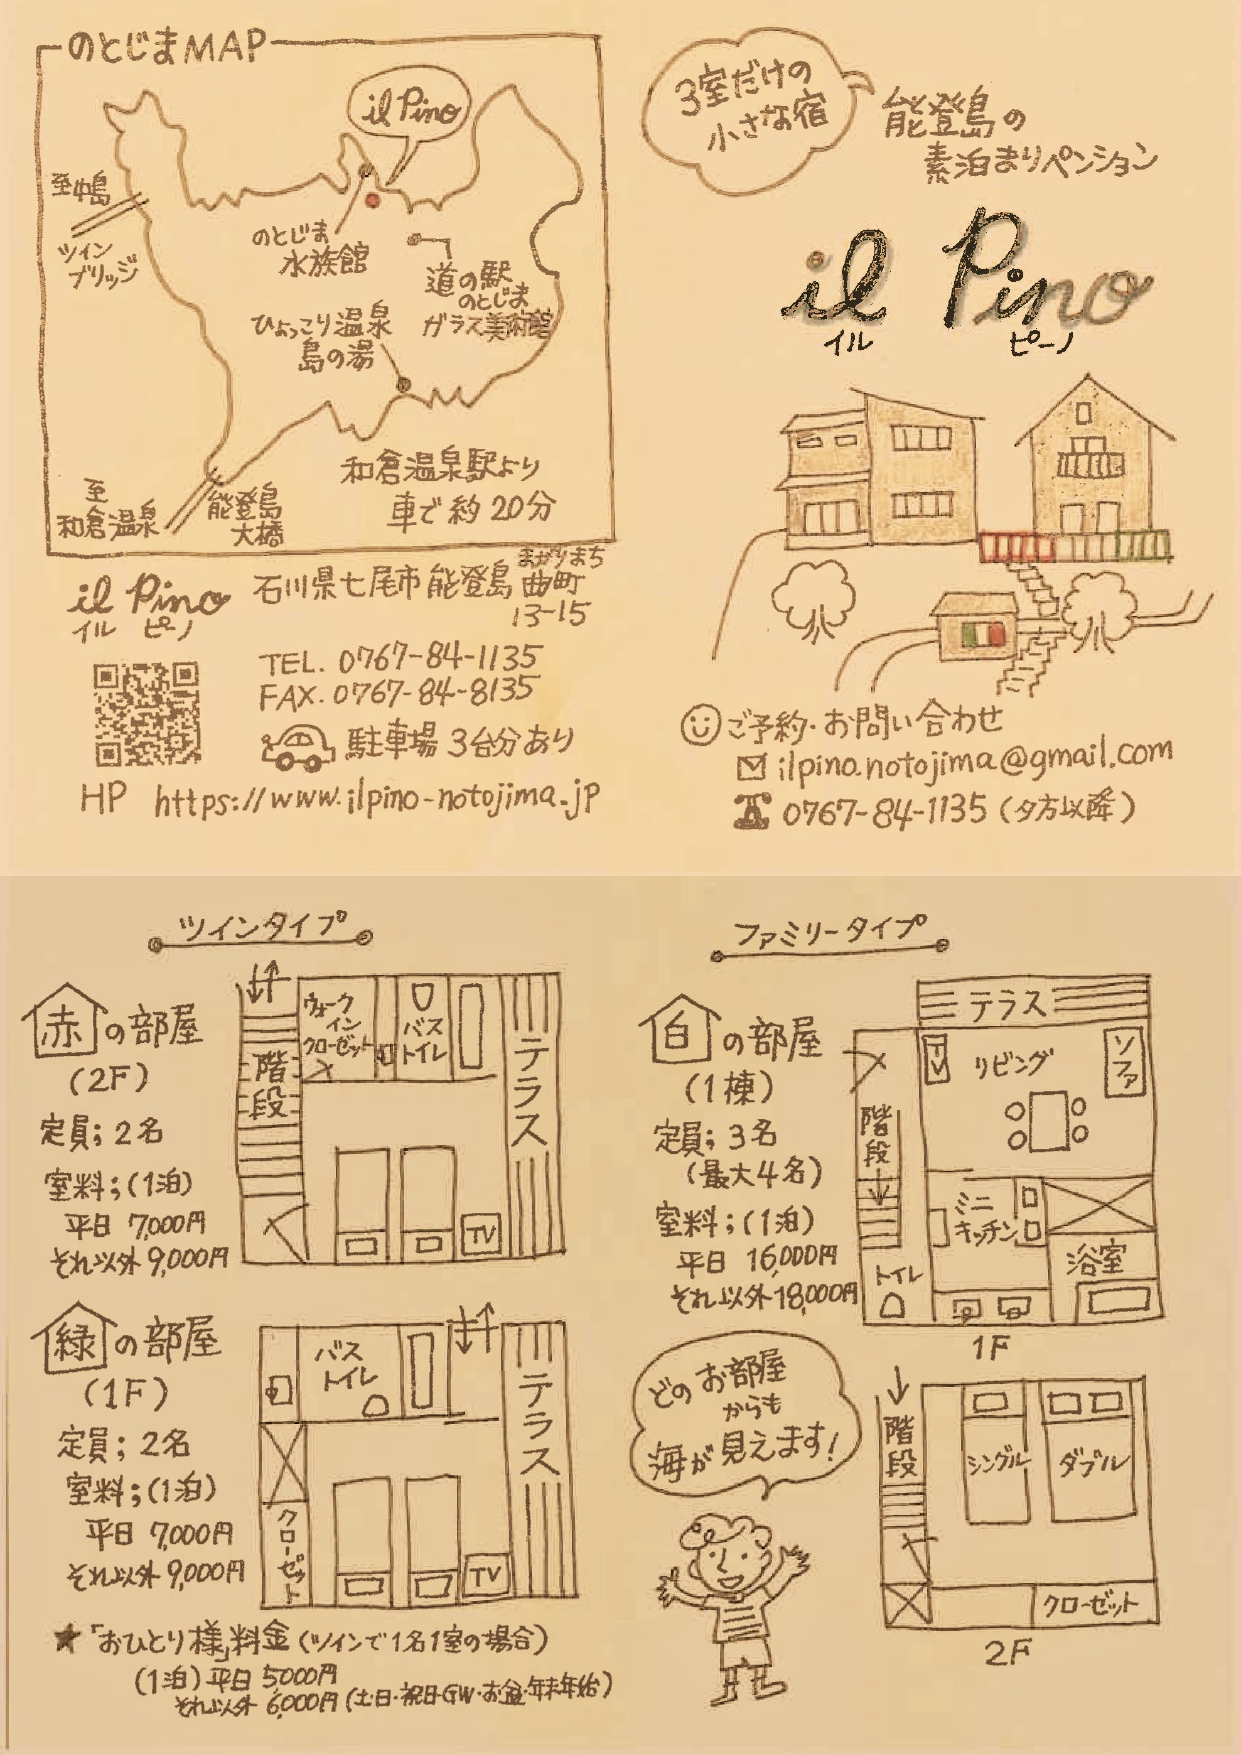 のとじまMAP
il Pino
至中島
ツイン
ブリッジ
のとじま
水族館
道の駅
のとじま
ガラス美術館
ひょっこり温泉
島の湯
和倉温泉駅より
車で約20分
至
和倉温泉
能登島
大橋
il Pino
イル ピーノ
石川県七尾市能登島曲町
まがりまち
13-15
TEL. 0767-84-1135
FAX. 0767-84-8135
駐車場 3台分あり
HP https://www.ilpino-notojima.jp
3室だけの
小さな宿
能登島の
素泊まりペンション
il Pino
イル ピーノ
ご予約・お問い合わせ
ilpino.notojima@gmail.com
0767-84-1135(夕方以降)
ツインタイプ
赤の部屋
(2F)
定員;2名
室料;(1泊)
平日 7,000円
それ以外 9,000円
階段
ウォーク
イン
クローゼット
バス
トイレ
テラス
TV
緑の部屋
(1F)
定員;2名
室料;(1泊)
平日 7,000円
それ以外 9,000円
バス
トイレ
テラス
クローゼット
TV
★「おひとり様」料金(ツインで1名1室の場合)
(1泊)平日 5,000円
それ以外 6,000円(土日・祝日・GW・お盆・年末年始)
ファミリータイプ
白の部屋
(1棟)
定員;3名
(最大4名)
室料;(1泊)
平日 16,000円
それ以外 18,000円
テラス
TV
リビング
ソファ
階段
ミニ
キッチン
浴室
トイレ
1F
どのお部屋
からも
海が見えます!
階段
シングル
ダブル
クローゼット
2F